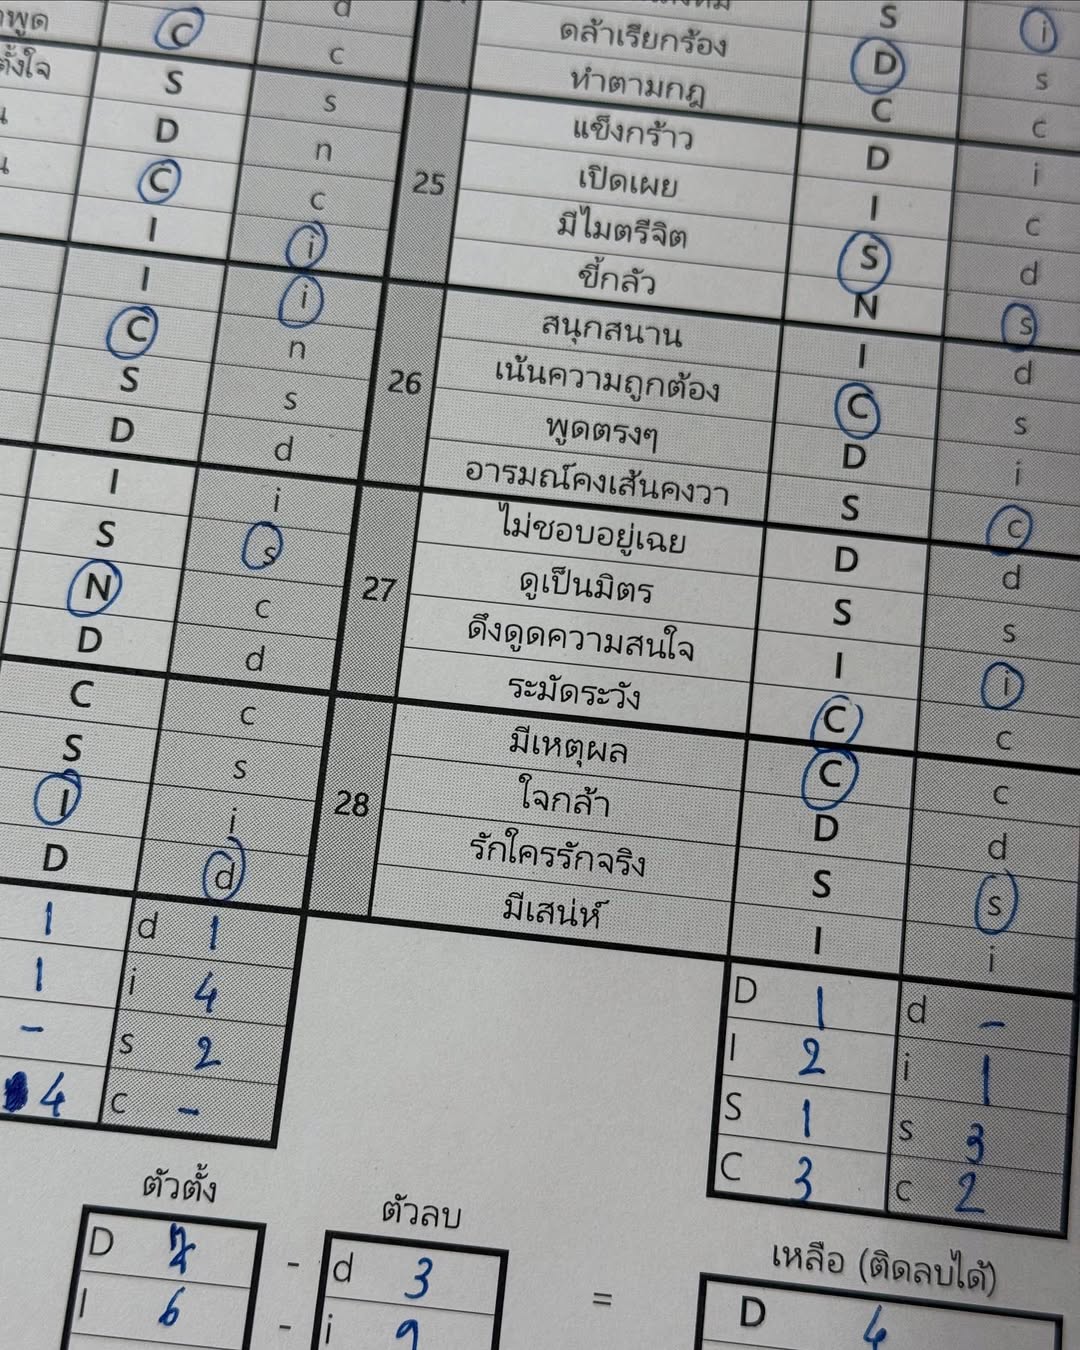 d
พูด C c
ตั้งใจ S s
D n
C c
I i
I i
C n
S s
D d
I i
S s
N c
D d
C c
S s
I i
D d
1 d 1
1 i 4
- s 2
4 c -
S i
กล้าเรียกร้อง D s
ทำตามกฎ C c
25
แข็งกร้าว D i
เปิดเผย I c
มีไมตรีจิต S d
ขี้กลัว N s
26
สนุกสนาน I d
เน้นความถูกต้อง C s
พูดตรงๆ D i
อารมณ์คงเส้นคงวา S c
27
ไม่ชอบอยู่เฉย D d
ดูเป็นมิตร S s
ดึงดูดความสนใจ I i
ระมัดระวัง C c
28
มีเหตุผล C c
ใจกล้า D d
รักใครรักจริง S s
มีเสน่ห์ I i
D 1 d -
I 2 i 1
S 1 s 3
C 3 c 2
ตัวตั้ง ตัวลบ เหลือ (ติดลบได้)
D 7 - d 3 = D 4
I 6 - i 9